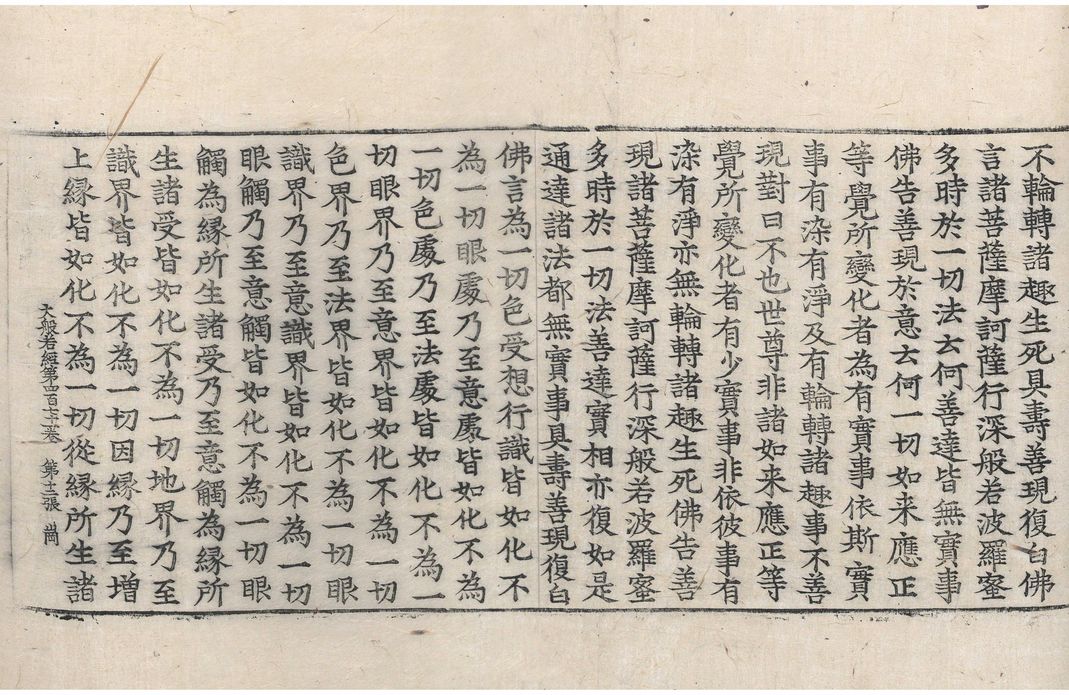 不輪轉諸趣生死具壽善現復白佛
言諸菩薩摩訶薩行深般若波羅蜜
多時於一切法云何善達皆無實事
佛告善現於意云何一切如来應正
等覺所變化者為有實事依斯實
事有染有淨及有輪轉諸趣事不善
現對曰不也世尊非諸如来應正等
覺所變化者有少實事非依彼事有
染有淨亦無輪轉諸趣生死佛告善
現諸菩薩摩訶薩行深般若波羅蜜
多時於一切法善達實相亦復如是
通達諸法都無實事具壽善現復白
佛言為一切色受想行識皆如化不
為一切眼處乃至意處皆如化不為
一切色處乃至法處皆如化不為一
切眼界乃至意界皆如化不為一切
色界乃至法界皆如化不為一切眼
識界乃至意識界皆如化不為一切
眼觸乃至意觸皆如化不為一切眼
觸為縁所生諸受乃至意觸為縁所
生諸受皆如化不為一切地界乃至
識界皆如化不為一切因縁乃至增
上縁皆如化不為一切從縁所生諸
大般若經第四百七十二卷 第十二張 崗